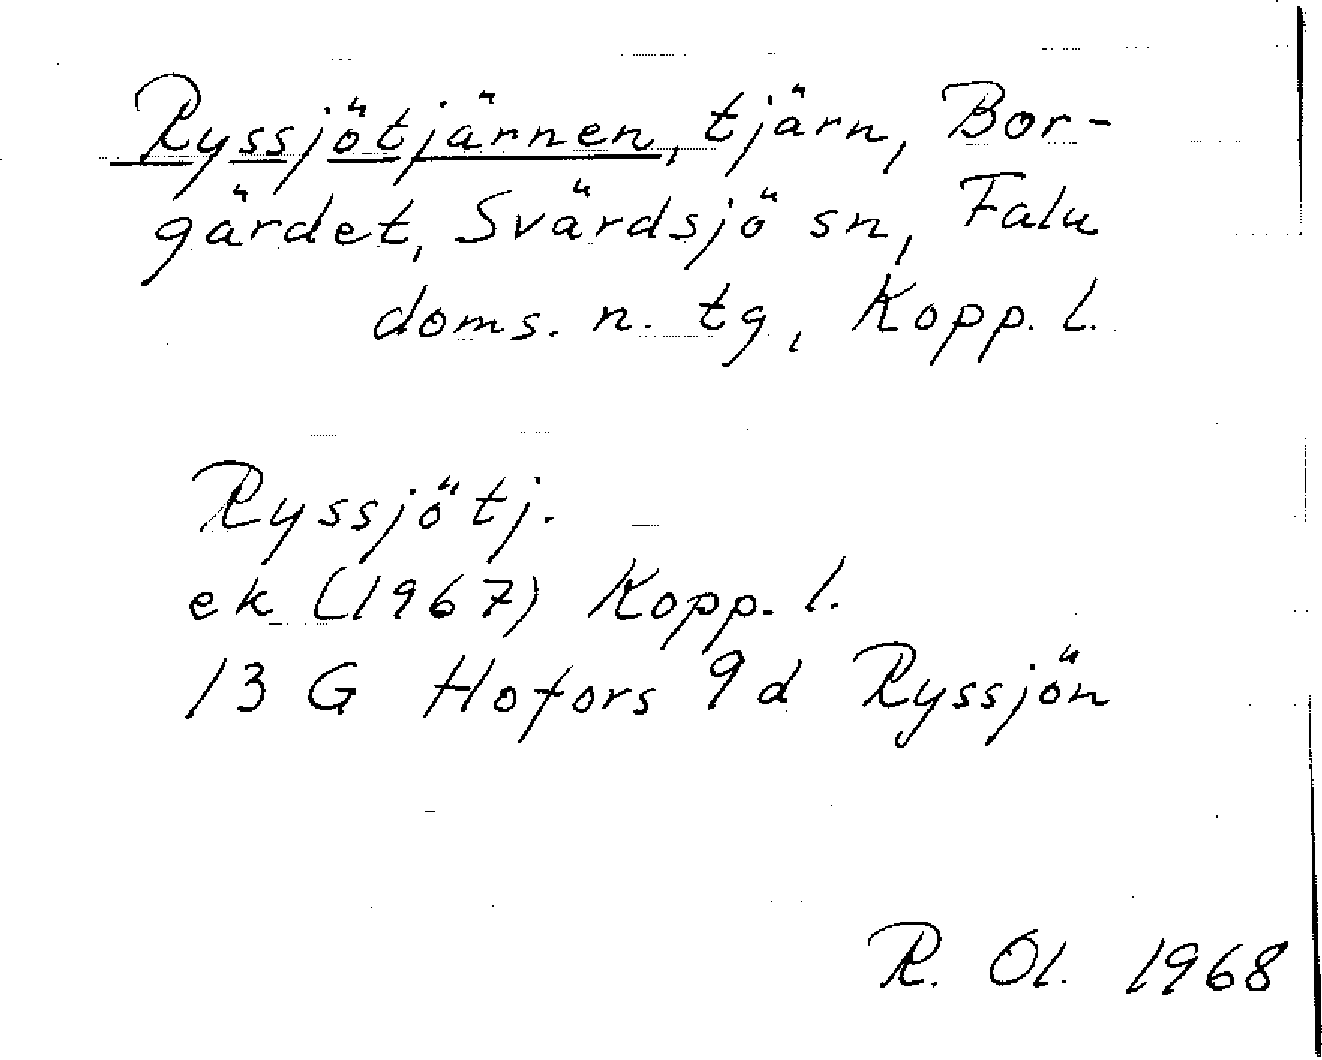 Ryssjötjärnen, tjärn, Bor-
gärdet, Svärdsjö sn, Falu
doms. n. tg, Kopp. l.
Ryssjötj.
ek (1967) Kopp. l.
13 G Hofors 9d Ryssjön
R. Ol. 1968